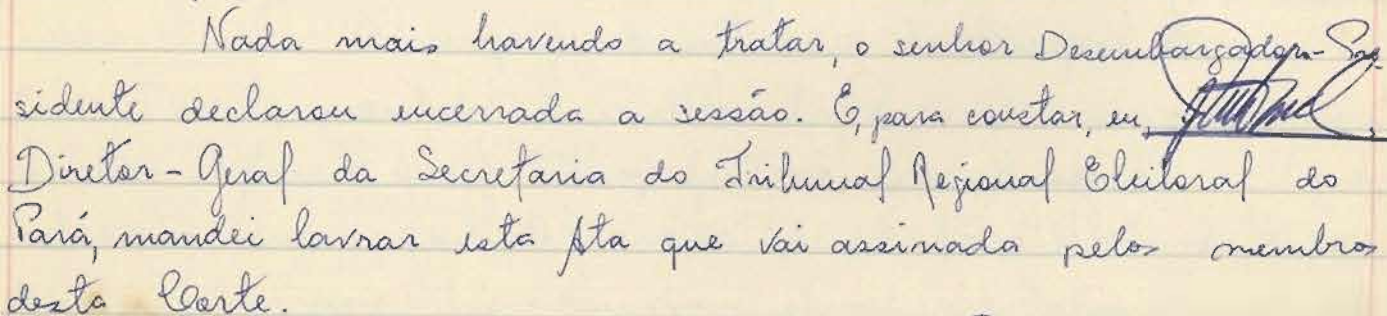 Nada mais havendo a tratar, o senhor Desembargador-Pre-
sidente declarou encerrada a sessão. E, para constar, eu, ,
Diretor-Geral da Secretaria do Tribunal Regional Eleitoral do
Pará, mandei lavrar esta Ata que vai assinada pelos membros
desta Corte.